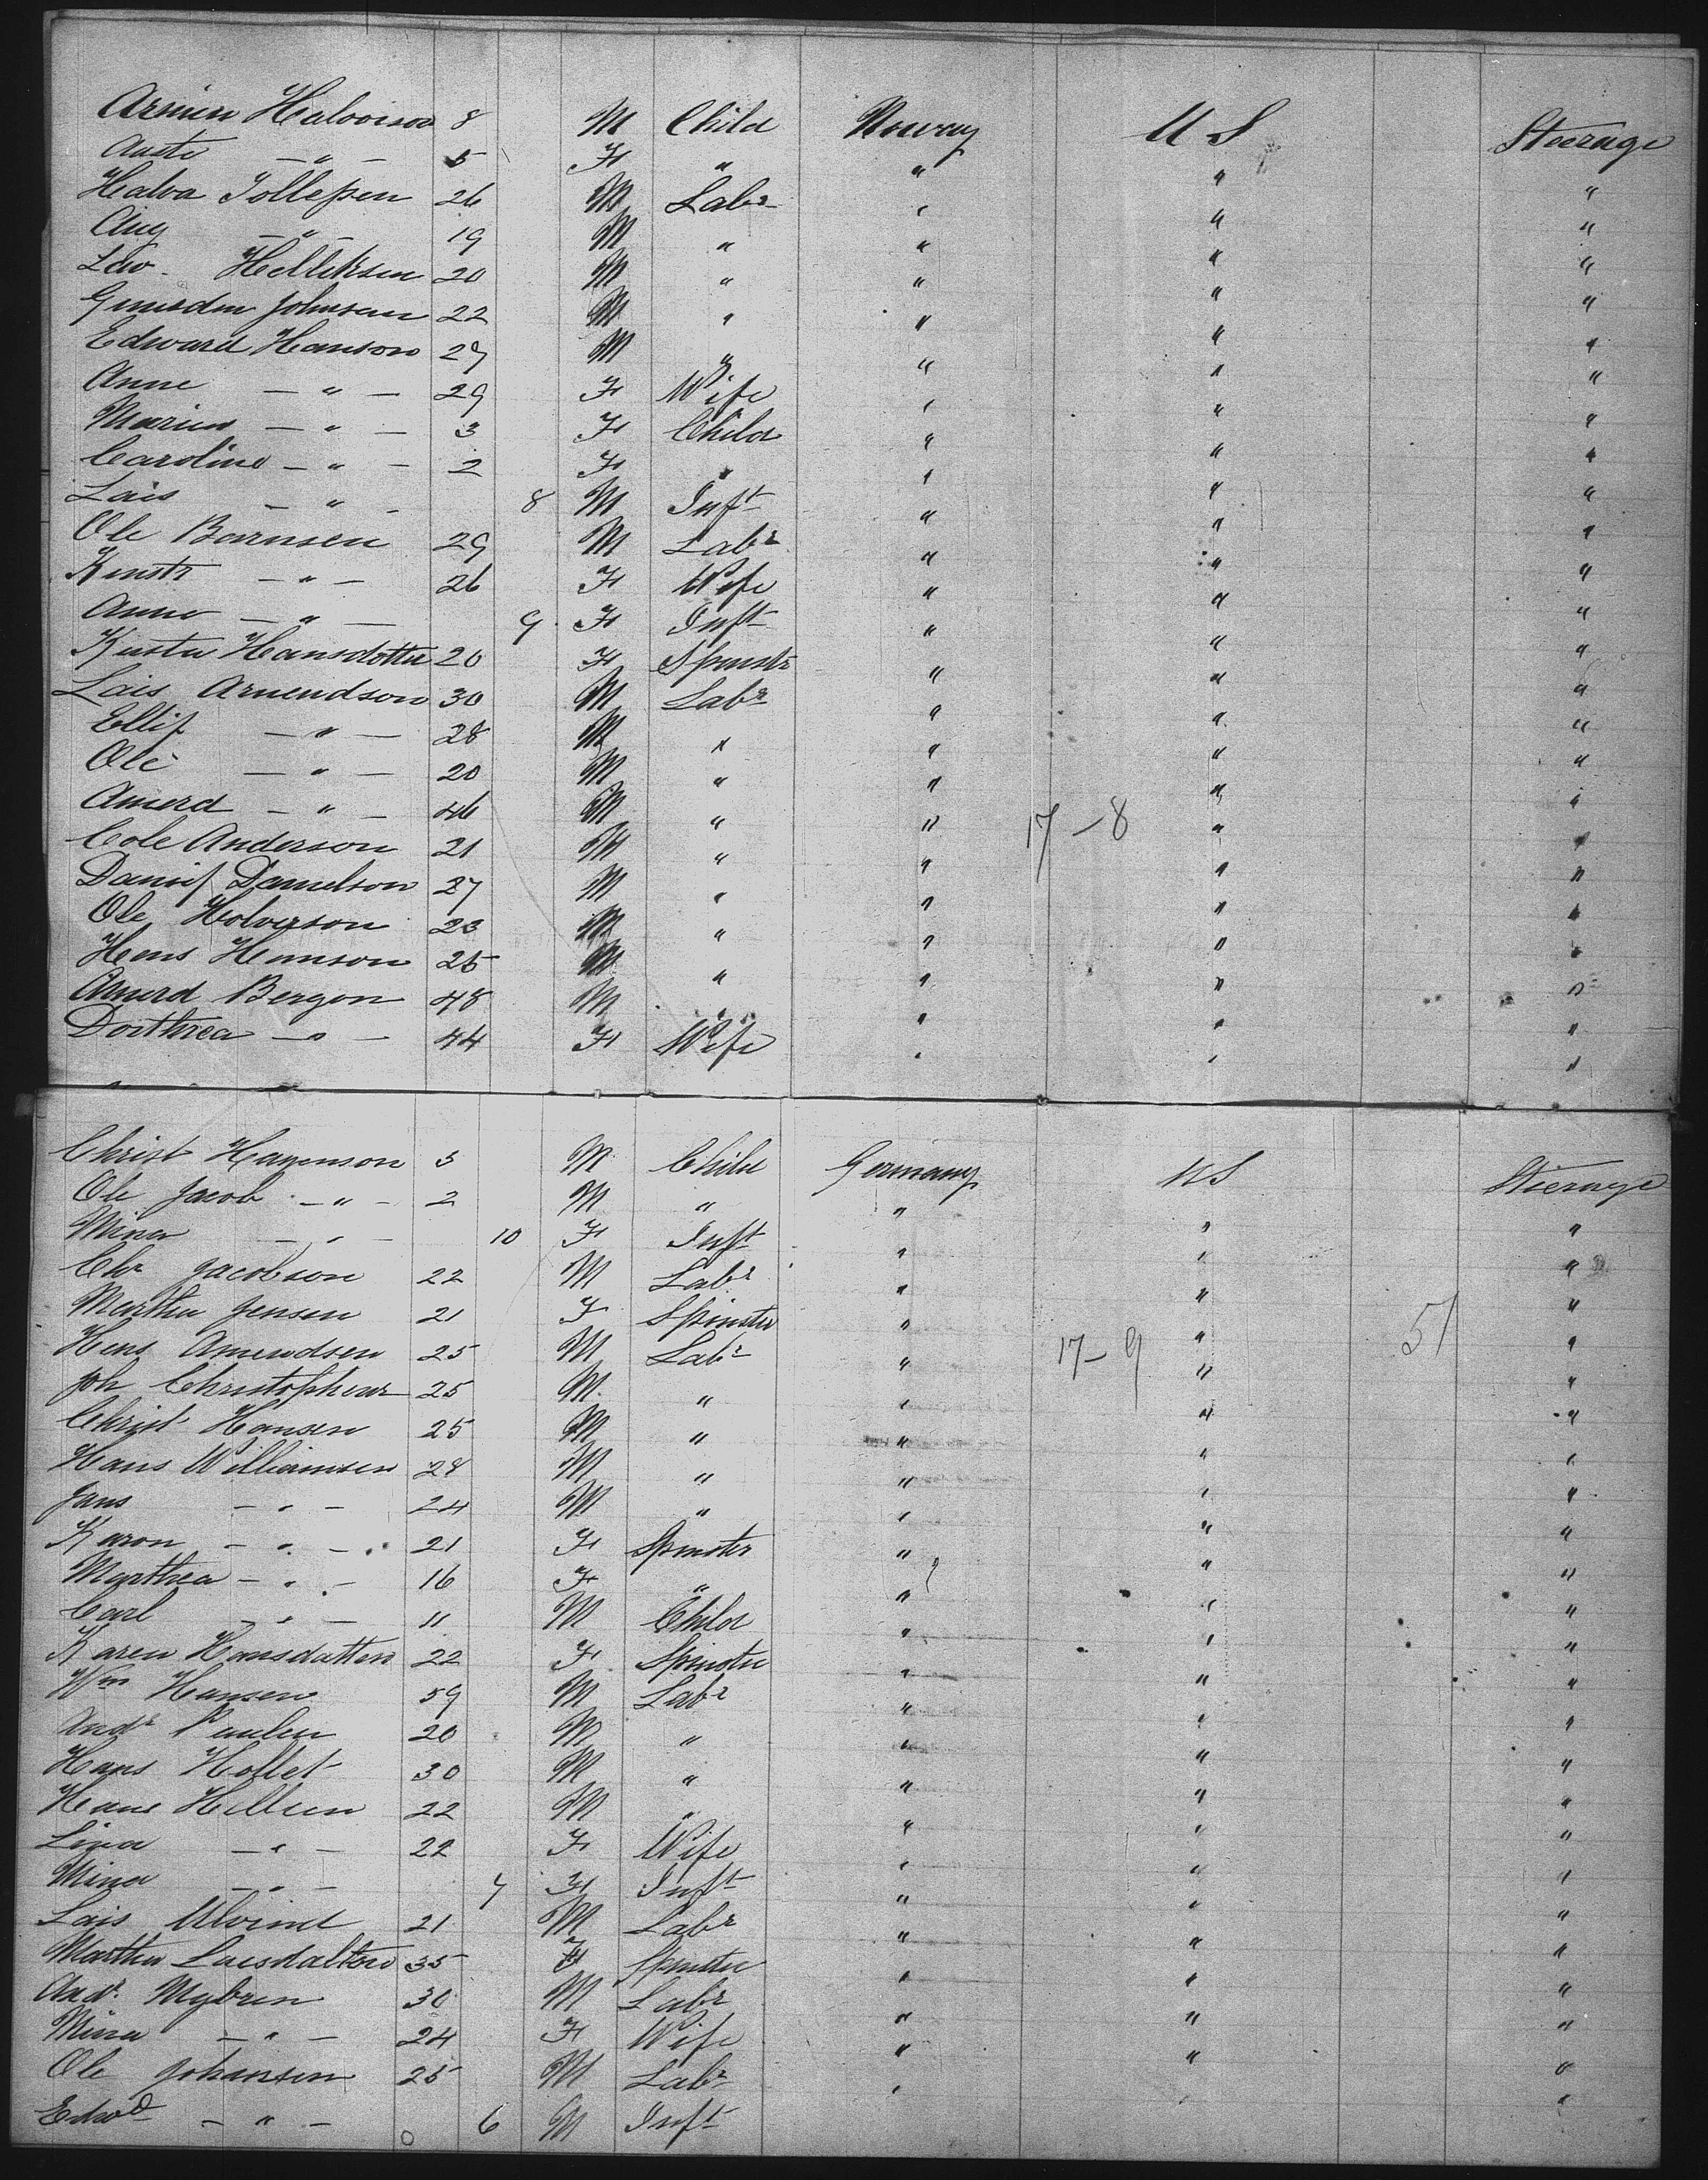 Halvorson 8 M Child Norway U S Steerage
— " — 5 F " " " "
Halva Tollefsen 26 M Labr " " "
Aug — " — 19 M " " " "
Helliksen 20 M " " " "
Johnsen 22 M " " " "
Edward Hanson 27 M " " " "
Anne — " — 29 F Wife " " "
— " — 3 F Child " " "
Caroline — " — 2 F " " " "
Lais — " — 8 M Inft " " "
Ole Barnsen 29 M Labr " " "
— " — 26 F Wife " " "
Anne — " — 9 F Inft " " "
Hansdotter 20 F Spinstr " " "
Lais Arnendson 30 M Labr " " "
Ellif — " — 28 M " " " "
Ole — " — 20 M " " " "
Amerd — " — 46 M " " " "
17 – 8
Cole Anderson 21 M " " " "
Danielson 27 M " " " "
Ole Holverson 23 M " " " "
Hens Hanson 25 M " " " "
Amerd Bergon 48 M " " " "
Dorthrea — " — 44 F Wife " " "
Christ 3 M Child Germany U S Steerage
Ole Jacob — " — 2 M " " " "
Mina — " — 10 F Inft " " "
Chr Jacobson 22 M Labr " " "
Martha Jensen 21 F Spinster " " "
Hens Amendsen 25 M Labr " " "
17 – 9 51
Joh 25 M " " " "
Christ Hansen 25 M " " " "
Hans Williamsen 28 M " " " "
Jans — " — 24 M " " " "
Karon — " — 21 F Spinster " " "
Marthea — " — 16 F " " " "
Carl — " — 11 M Child " " "
Karen Hansdatten 22 F Spinster " " "
Wm Hansen 59 M Labr " " "
Andr 20 M " " " "
Hans Hollet 30 M " " " "
Hans 22 M " " " "
Lina — " — 22 F Wife " " "
Mina — " — 7 F Inft " " "
Lais 21 M Labr " " "
Martha 35 F Spinster " " "
Andr. Mybren 30 M Labr " " "
Mina — " — 24 F Wife " " "
Ole Johansen 25 M Labr " " "
Edwd — " — 0 6 M Inft